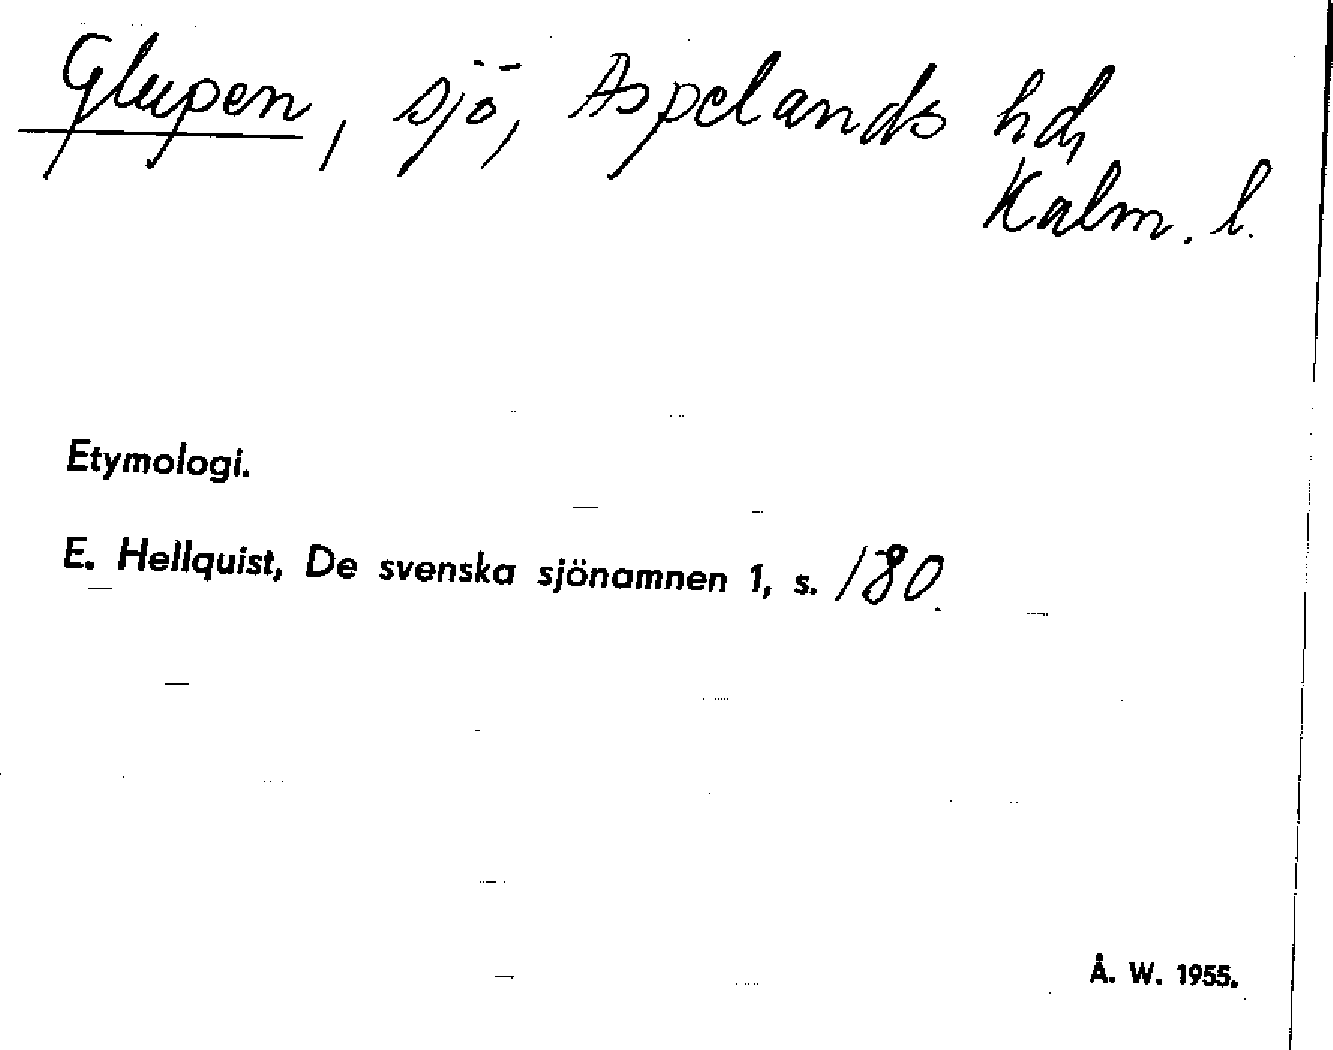 Glupen, sjö, Aspelands hd,
Kalm. l.
Etymologi.
E. Hellquist, De svenska sjönamnen 1, s. 180.
Å. W. 1955.